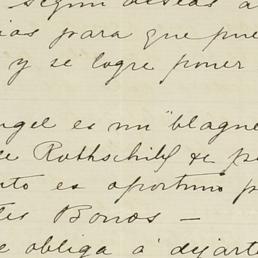 según deseas a
ias para que pue
y se logre poner
ngel es un "blague
de Rothschild & p
nto es oportuno p
tes Bonos —
e obliga á dejart